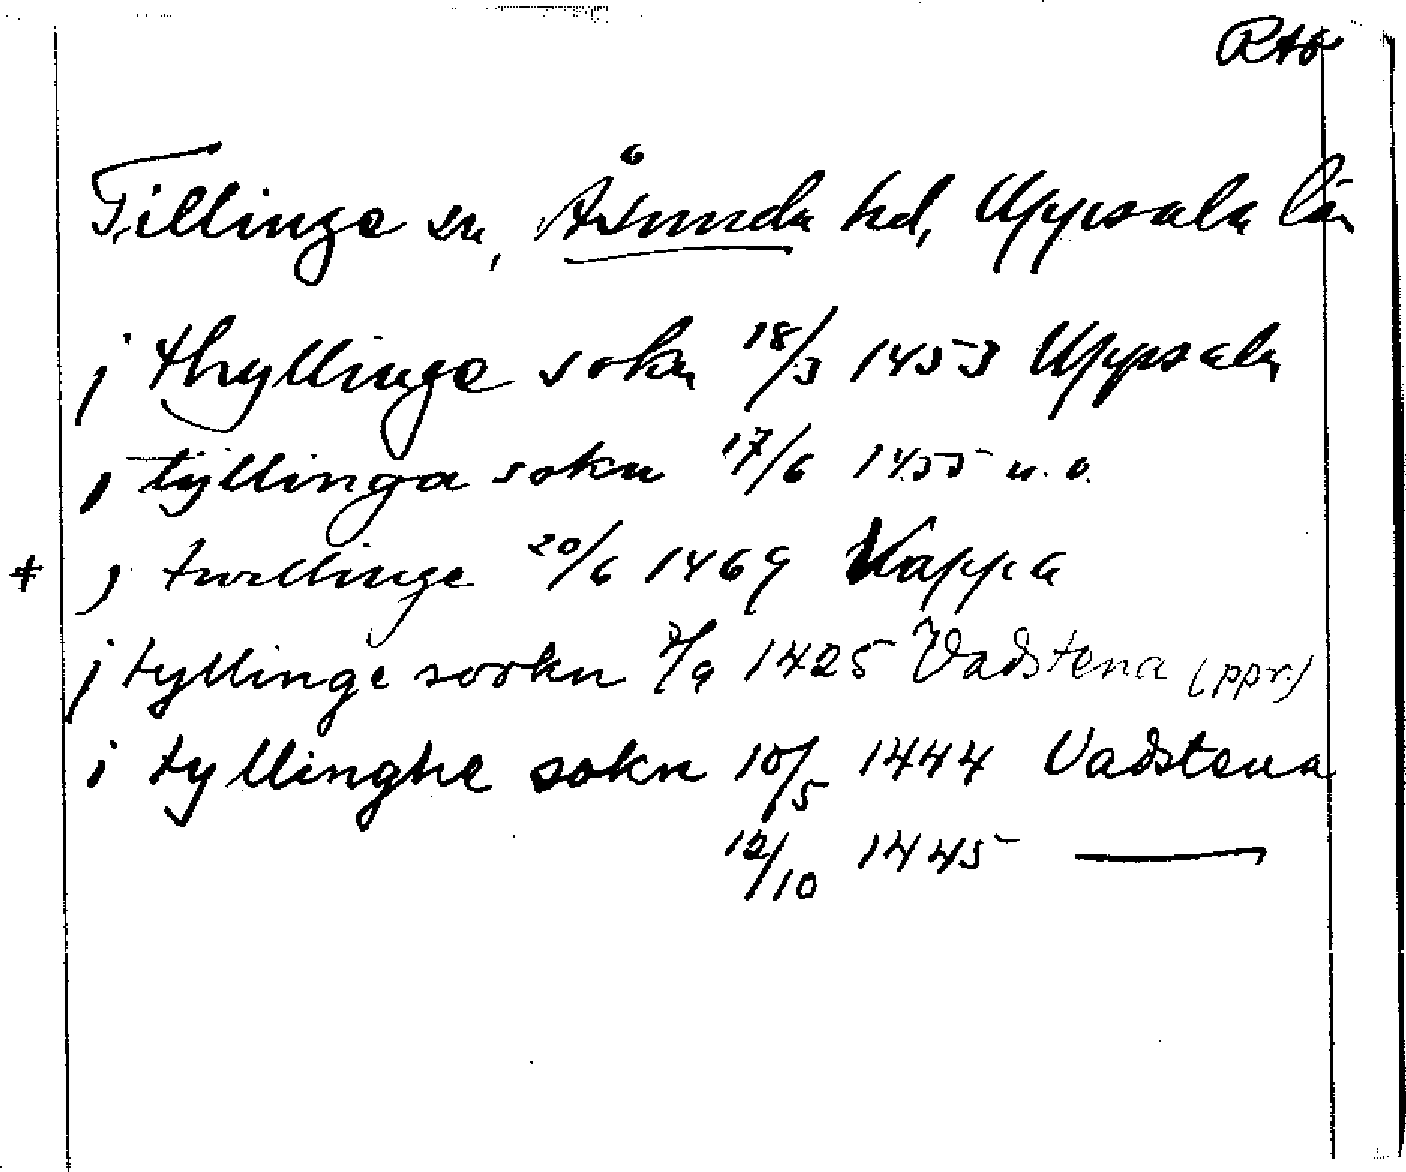 RAÖ
Tillinge sn, Åsunda hd, Uppsala län
j thyllinge sokn 18/3 1453 Uppsala
j tyllinga sokn 17/6 1455 u.o.
+ j twllinge 20/6 1469 Kappa
j tyllinge sorkn 7/9 1425 Vadstena (ppr)
i tyllinghe sokn 10/5 1444 Vadstena
12/10 1445 —